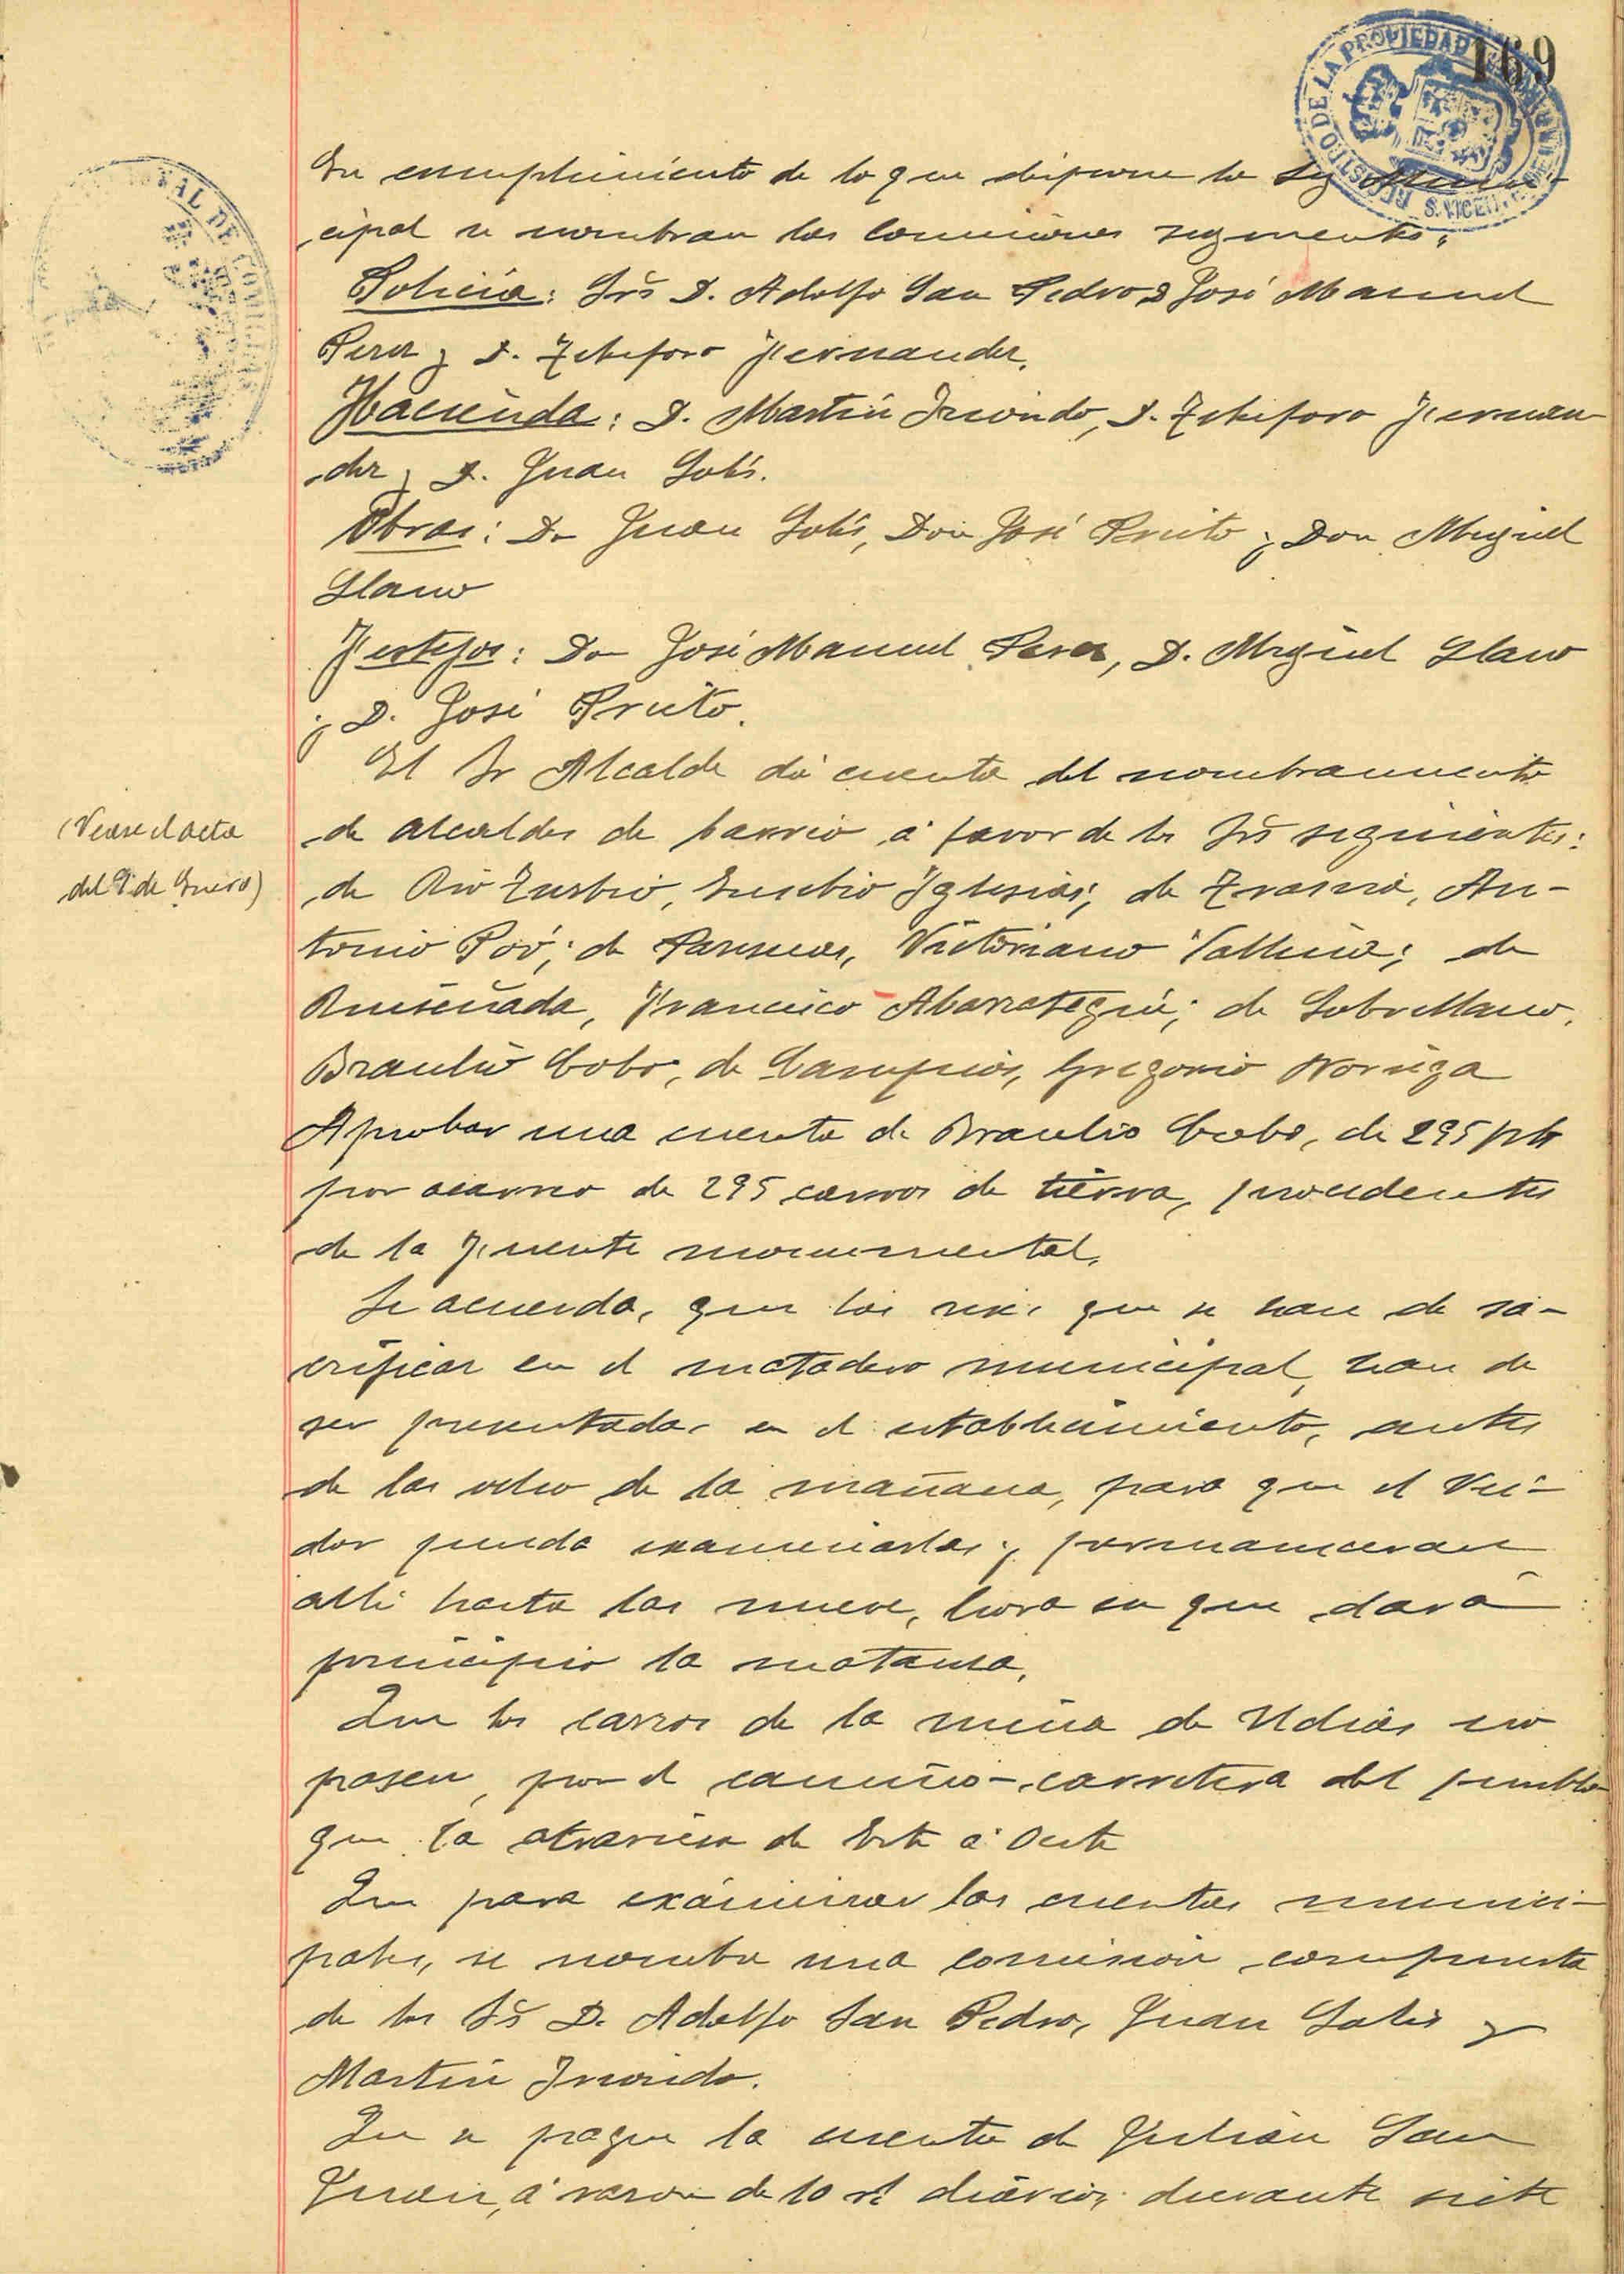 169
REGISTRO DE LA PROPIEDAD
S. VICENTE
En cumplimiento de lo que dispone la Ley Muni-
cipal se nombran las comisiones siguientes:
Policía: Srs D. Adolfo San Pedro D José Manuel
Perez y D. Telesforo Fernandez.
Hacienda: D. Martín Iruondo, D. Telesforo Fernan-
dez y D. Juan Solís.
Obras: Dn Juan Solís, Don José Prieto y Don Miguel
Llano
Festejos: Dn José Manuel Perez, D. Miguel Llano
y D. José Prieto.
El Sr Alcalde dá cuenta del nombramiento
de alcaldes de barrio á favor de los Srs siguientes:
(Vease el acta
del 9 de Enero)
de Rio Turbio, Eusebio Iglesias; de Trasvia, An-
tonio Poó; de Pansueas, Victoriano Vallina; de
Ruiseñada, Francisco Abarrategui; de Sobrellano,
Braulio Cobo, de Campios, Gregorio Noriega
Aprobar una cuenta de Braulio Cobo, de 295 pts
por acarreo de 295 carros de tierra, procedentes
de la Fuente monumental.
Se acuerda, que las reses que se han de sa-
crificar en el matadero municipal, han de
ser presentadas en el establecimiento, antes
de las ocho de la mañana, para que el Vee-
dor pueda examinarlas y permaneceran
alli hasta las nueve, hora en que dará
principio la matanza.
Que los carros de la mina de Udias no
pasen, por el camino-carretera del pueblo
que la atraviesa de Este á Oeste
Que para exáminar las cuentas munici-
pales, se nombre una comision compuesta
de los Srs D. Adolfo San Pedro, Juan Solis y
Martín Iruondo.
Que se pague la cuenta de Julián San
Juan, á razon de 10 rs diarios, durante siete